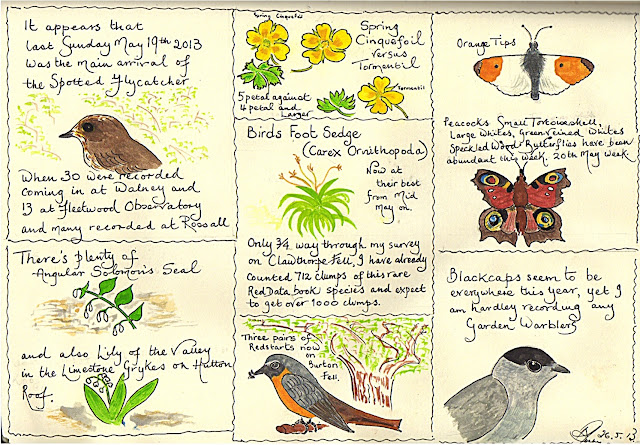 It appears that
last Sunday May 19th 2013
was the main arrival of
the Spotted Flycatcher
When 30 were recorded
coming in at Walney and
13 at Fleetwood Observatory
and many recorded at Rossall
There's plenty of
Angular Solomon's Seal
and also Lily of the Valley
in the Limestone Grykes on Hutton
Roof.
Spring Cinquefoil
Spring
Cinquefoil
versus
Tormentil
Tormentil
5 petal against
4 petal and
Larger
Birds Foot Sedge
(Carex Ornithopoda)
Now at
their best
from Mid
May on.
Only 3/4 way through my survey
on Clawthorpe Fell, I have already
counted 712 clumps of this rare
Red Data book species and expect
to get over 1000 clumps.
Three pairs of
Redstarts now
on
Burton
Fell.
Orange Tips
Peacocks, Small Tortoiseshell,
Large Whites, Green veined Whites
Speckled Wood Butterflies have been
abundant this week. 20th May week.
Blackcaps seem to be
everywhere this year, yet I
am hardley recording any
Garden Warblers
26.5.13